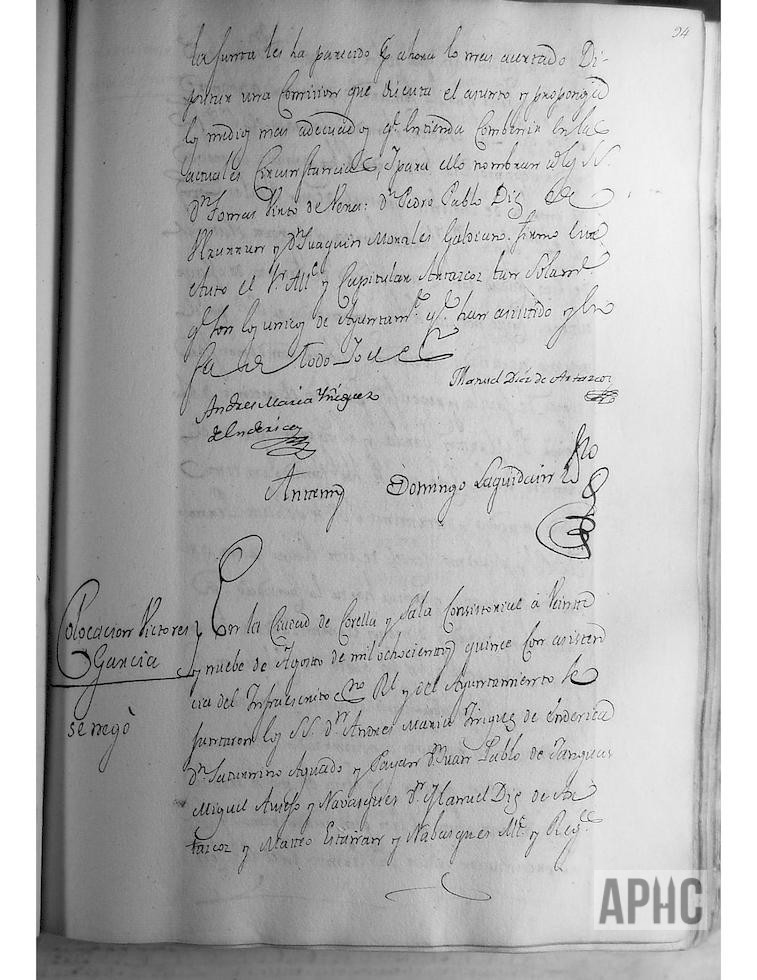 94
la Junta les ha parecido pr ahora lo mas acertado Di-
putar una Comision que discuta el asunto y proponga
los medios mas adecuados qe. entienda Combenir en las
actuales Circunstancias, y para ello nombran a los SS.
Dn. Tomas Pinto de Vena: Dn. Pedro Pablo Diez de
y Dn. Juaquin Morales Galdiano. firmo este
Auto el Sr. Alle. y Capitular Antazcoz tan Solamte.
qe. son los unicos de Ayuntamto. qe. han asistido y en
fe de todo Yo el
Andres Maria Yñiguez
de Enderica
Manuel Diez de Antazcoz
Antemy Domingo Laquidain
Colocacion Victores
Garcia
se negò
En la Ciudad de Corella y Sala Consistorial à Veinte
y nuebe de Agosto de mil ochocientos quince Con asisten
cia del Infraescrito Esno Rl. y del Ayuntamiento se
juntaron los SS. Dn. Andres Maria Yñiguez de Enderica
Dn. Saturnino Aguado y Payan Dn. Juan Pablo de
Miguel y Navasques Dn. Manuel Diez de An
tazcoz y Matteo Estaran y Nabasques Alle. y Regs.
APHC